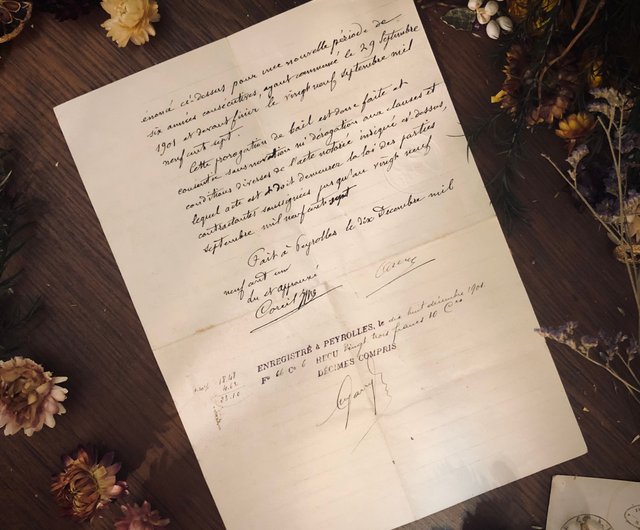 énoncé ci-dessus pour une nouvelle période de
six années consécutives, ayant commencé le 29 Septembre
1901 et devant finir le vingt neuf septembre mil
neuf cent sept.
Cette prorogation de bail est donc faite et
consentie sans novation ni dérogation aux clauses et
conditions diverses de l'acte notarié indiqué ci-dessus,
lequel acte est et doit demeurer la loi des parties
contractantes soussignées jusqu'au vingt neuf
septembre mil neuf cent sept
Fait à Peyrolles le dix Décembre mil
neuf cent un
Lu et approuvé
ENREGISTRÉ A PEYROLLES, le dix huit décembre 1901
Fo 66 Co 6 REÇU Vingt trois francs 10 Ces
DÉCIMES COMPRIS
18.48
4.62
23.10